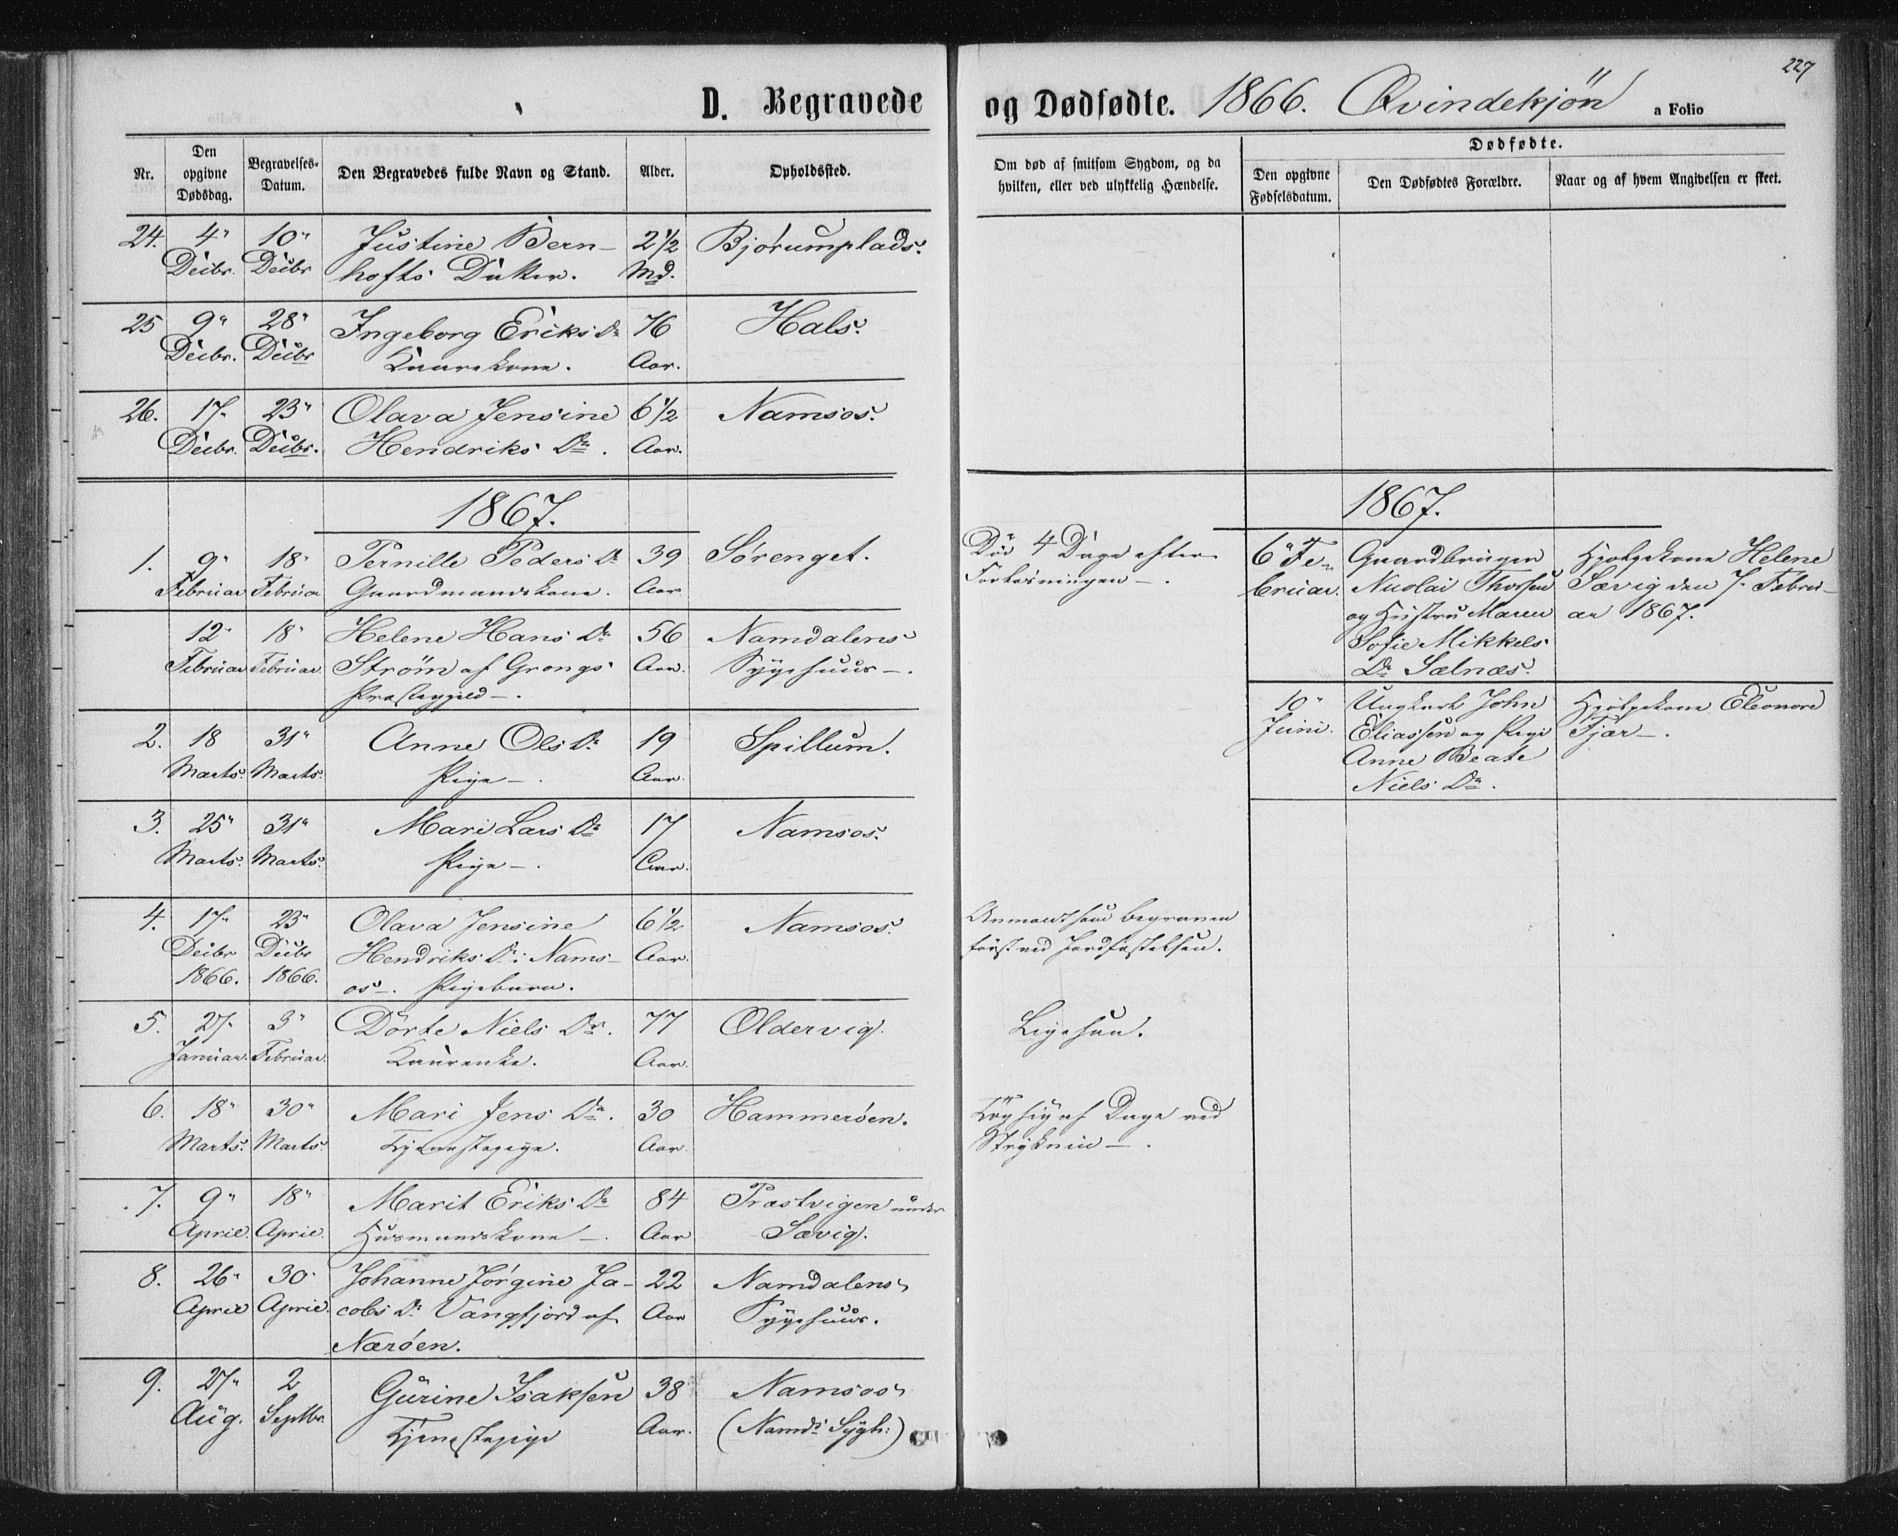 227
D. Begravede og Dødfødte. 1866. Qvindekjön a Folio
Nr.
Den opgivne Dødsdag.
Begravelses-Datum.
Den Begravedes fulde Navn og Stand.
Alder.
Opholdssted.
Om død af smitsom Sygdom, og da
hvilken, eller ved ulykkelig Hændelse.
Dødfødte.
Den opgivne Fødselsdatum.
Den Dødfødtes Forældre.
Naar og af hvem Angivelsen er skeet.
24. 4" 10" Justine Bern- 2½ Bjørumplads.
Decbr. Decbr hofts Datter. Md.
25 9" 28" Ingeborg Eriks Dr 76 Hals.
Decbr. Decbr Kone. Aar.
26. 17" 23" Olava Jensine 6½ Namsos.
Decbr. Decbr. Hendriks Dr. Aar.
1867.
1. 9" 18" Pernille Peders Dr 39 Sørenget.
Februar Februar Gaardmandskone. Aar
12" 18" Helene Hans Dr 56 Namdalens
Februar Februar Strøm af Grongs Aar. Sygehuus.
Præstegjeld.
2. 18 31" Anne Ols Dr 19 Spillum.
Marts. Marts. Pige. Aar.
3. 25" 31" Mari Lars Dr 17 Namsos.
Marts. Marts. Pige. Aar.
4. 17" 23" Olava Jensine 6½ Namsos.
Decbr Decbr Hendriks Dr: Nams- Aar.
1866. 1866. os. Pigebarn.
5. 27" 3" Dorte Niels Dr. 77 Oldervig.
Januar. Februar. Aar.
6. 18" 30" Mari Jens Dr. 30 Hammerøen.
Marts. Marts. Tjenestepige. Aar.
7. 9" 18" Marit Eriks Dr 84 Præstvigen under
April. April. Husmandskone. Aar Sævig.
8. 26" 30" Johanne Jørgine Ja- 22 Namdalens
April April. cobs Dr Vangfjord af Aar Sygehuus.
Nærøen.
9. 27" 2 Gurine Isaksen 38 Namsos
Aug. Septbr. Tjenestepige Aar. (Namds Sygh:)
Død 4 Dage efter
Forløsningen.
Anmeldt som begraven
først ved Jordfæstelsen.
Ligesaa.
Tog sig af Dage ved
1867.
6" Fe- Gaardbruger Hjelpekone Helene
bruar. Nicolai Thorsen Sævig den 7" Febru-
og Hustru Maren ar 1867.
Sofie Mikkels
Dr Sælnæs.
10" Ungkarl John Hjelpekone Eleonore
Juni. Eliassen og Pige Fjær.
Anne Beate
Niels Dr.